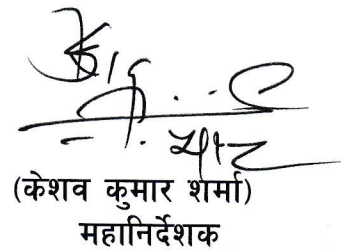 (केशव कुमार शर्मा)
महानिर्देशक